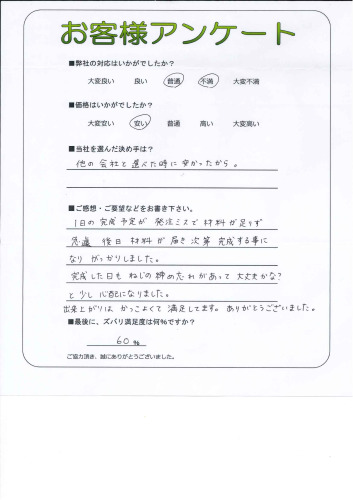 お客様アンケート
■弊社の対応はいかがでしたか?
大変良い 良い 普通 不満 大変不満
■価格はいかがでしたか?
大変安い 安い 普通 高い 大変高い
■当社を選んだ決め手は?
他の会社と選んだ時に安かったから。
■ご感想・ご要望などをお書き下さい。
1日の完成予定が発注ミスで材料が足りず
急遽 後日材料が届き次第完成する事に
なりがっかりしました。
完成した日もねじの締め忘れがあって大丈夫かな?
と少し心配になりました。
出来上がりはかっこよくて満足してます。ありがとうございました。
■最後に、ズバリ満足度は何%ですか?
60%
ご協力頂き、誠にありがとうございました。